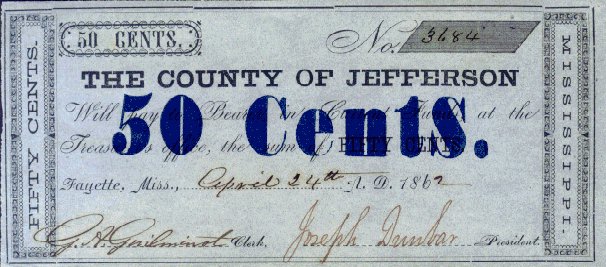 50 CENTS.
No. 3684
THE COUNTY OF JEFFERSON
Will pay to Bearer in Current Funds at the
50 Cents.
Treasurer's office, the sum of FIFTY CENTS
Fayette, Miss., April 24th A. D. 1862
Clerk. Joseph Dunbar President.
FIFTY CENTS.
MISSISSIPPI.